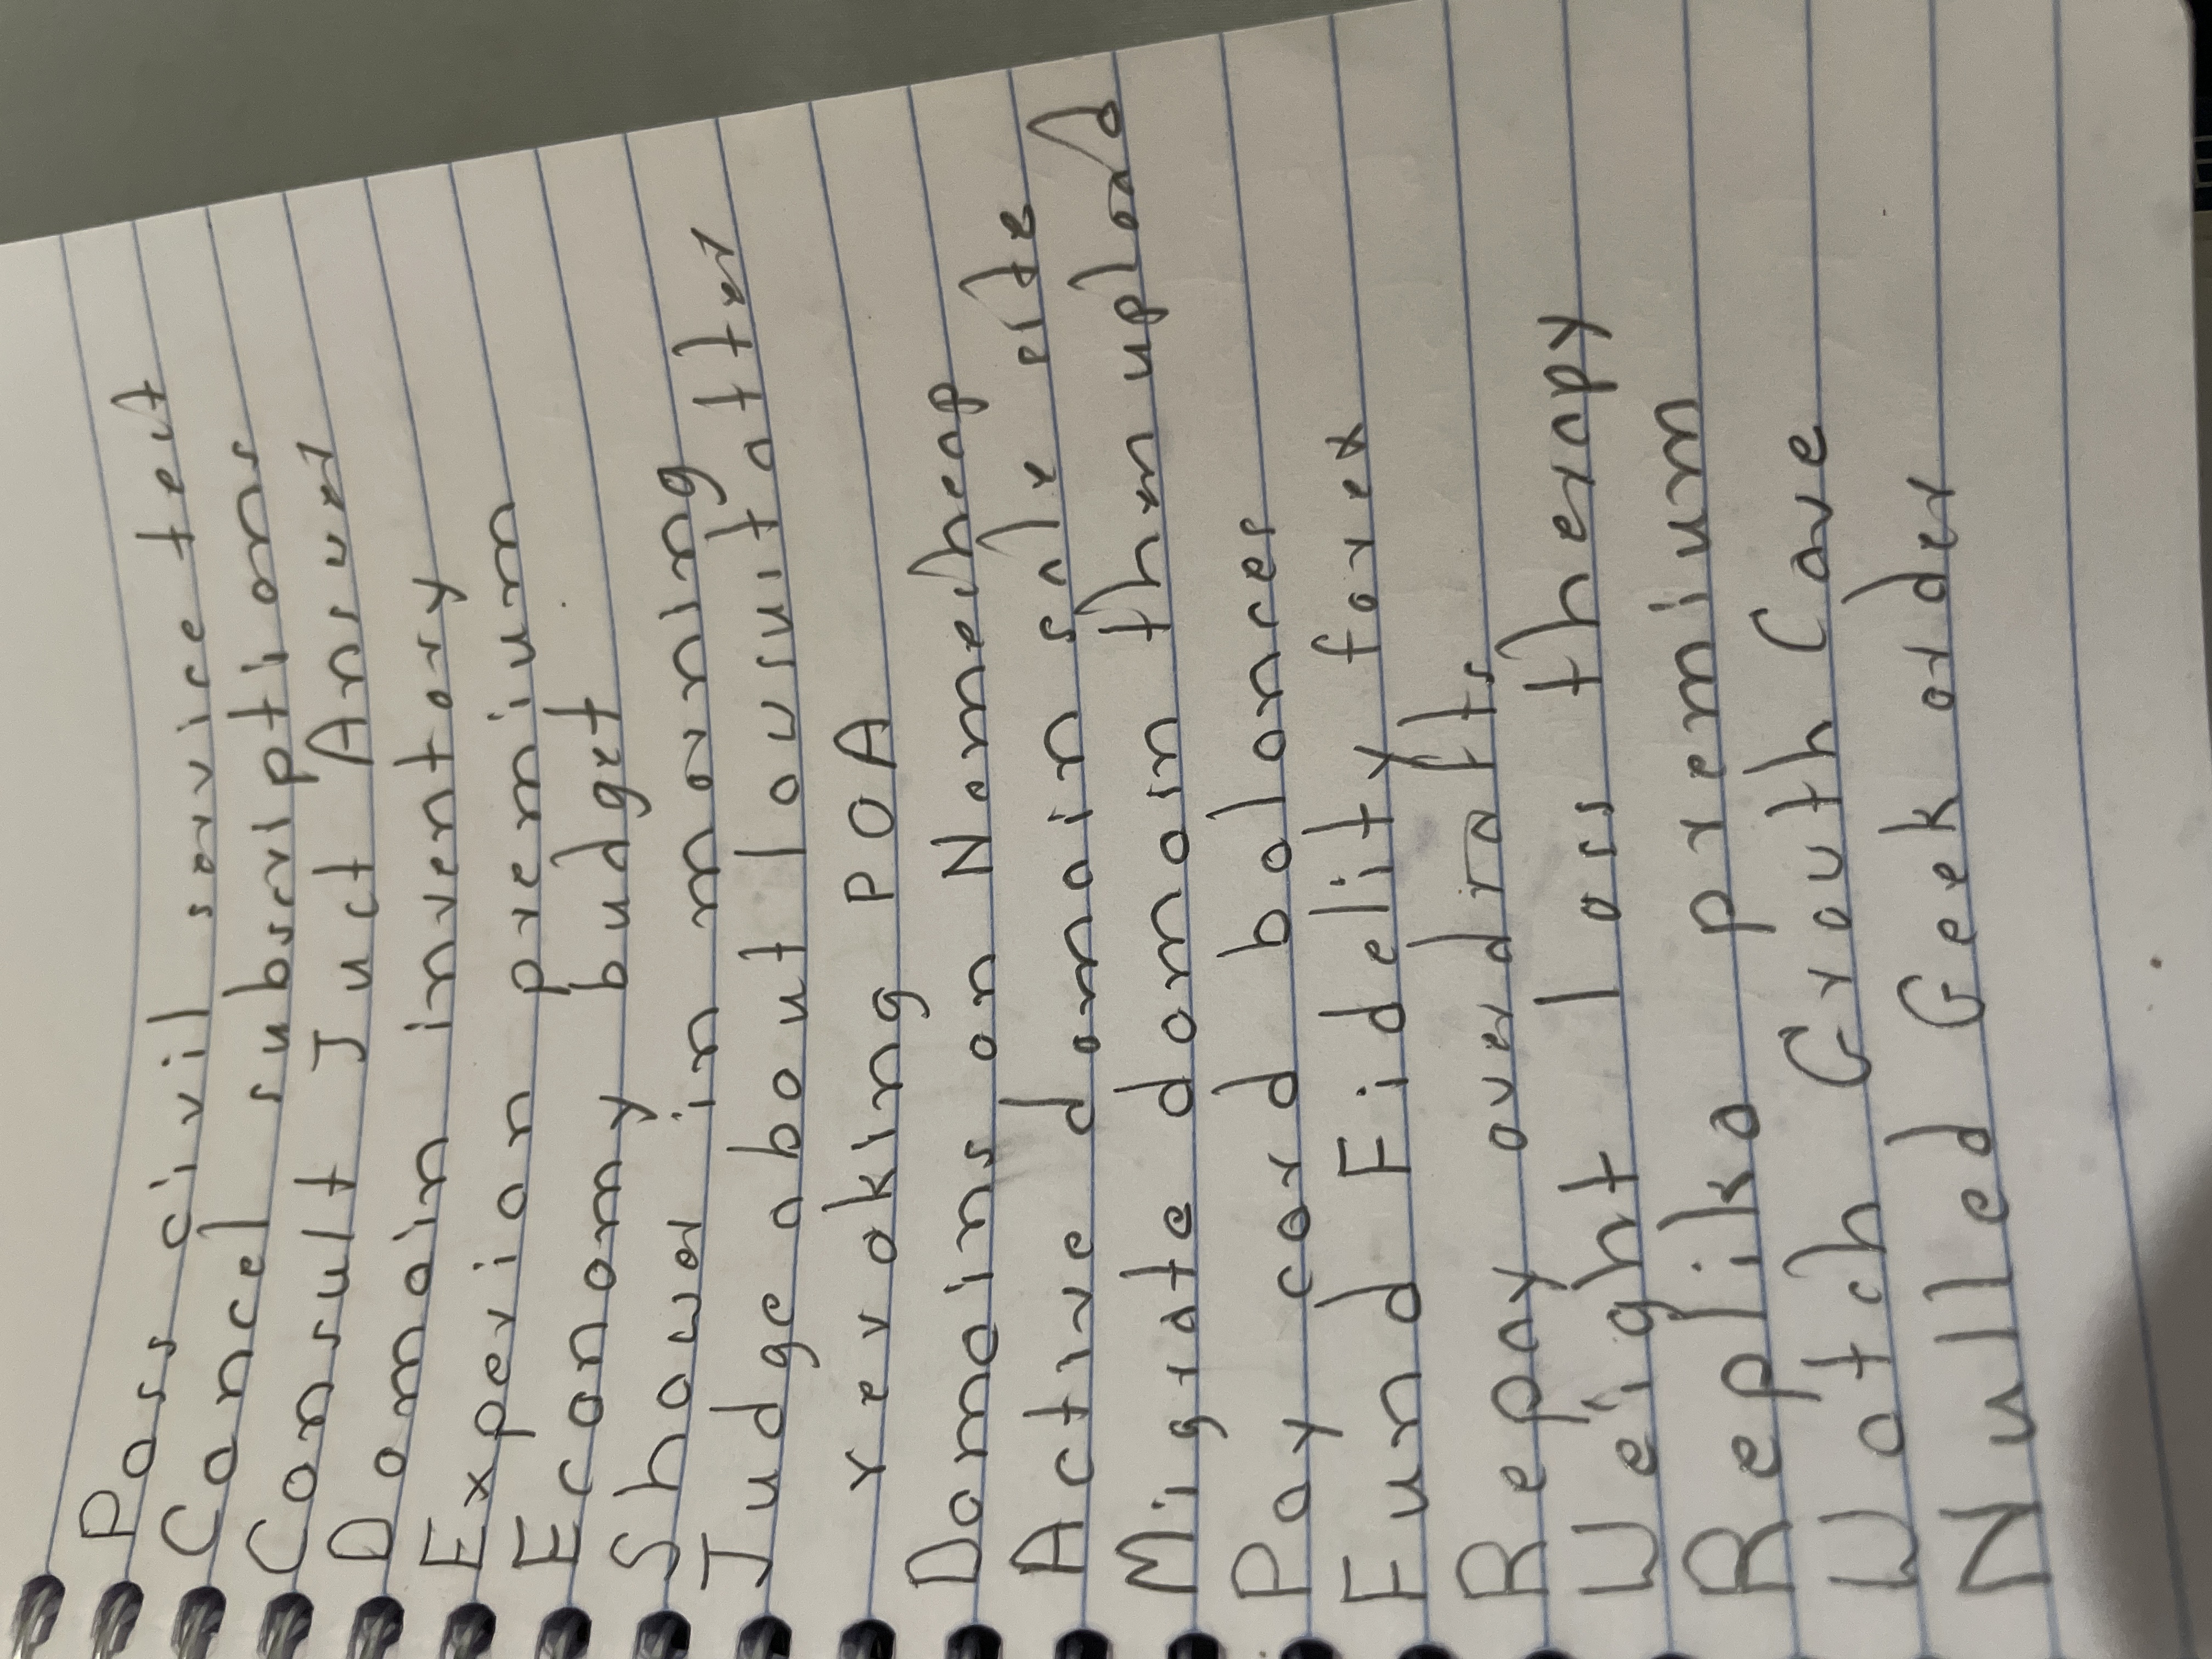 Pass civil service test
Cancel subscriptions
Consult Just Answer
Domain inventory
Experian premium
Economy budget
Shower in morning
Judge about lawsuit after
revoking POA
Domains on Namecheap
Active domain sale site
Migrate domain then upload
Pay card balances
Fund Fidelity forex
Repay overdrafts
Weight loss therapy
Replika premium
Watch Crouth Cave
Nulled Geek order